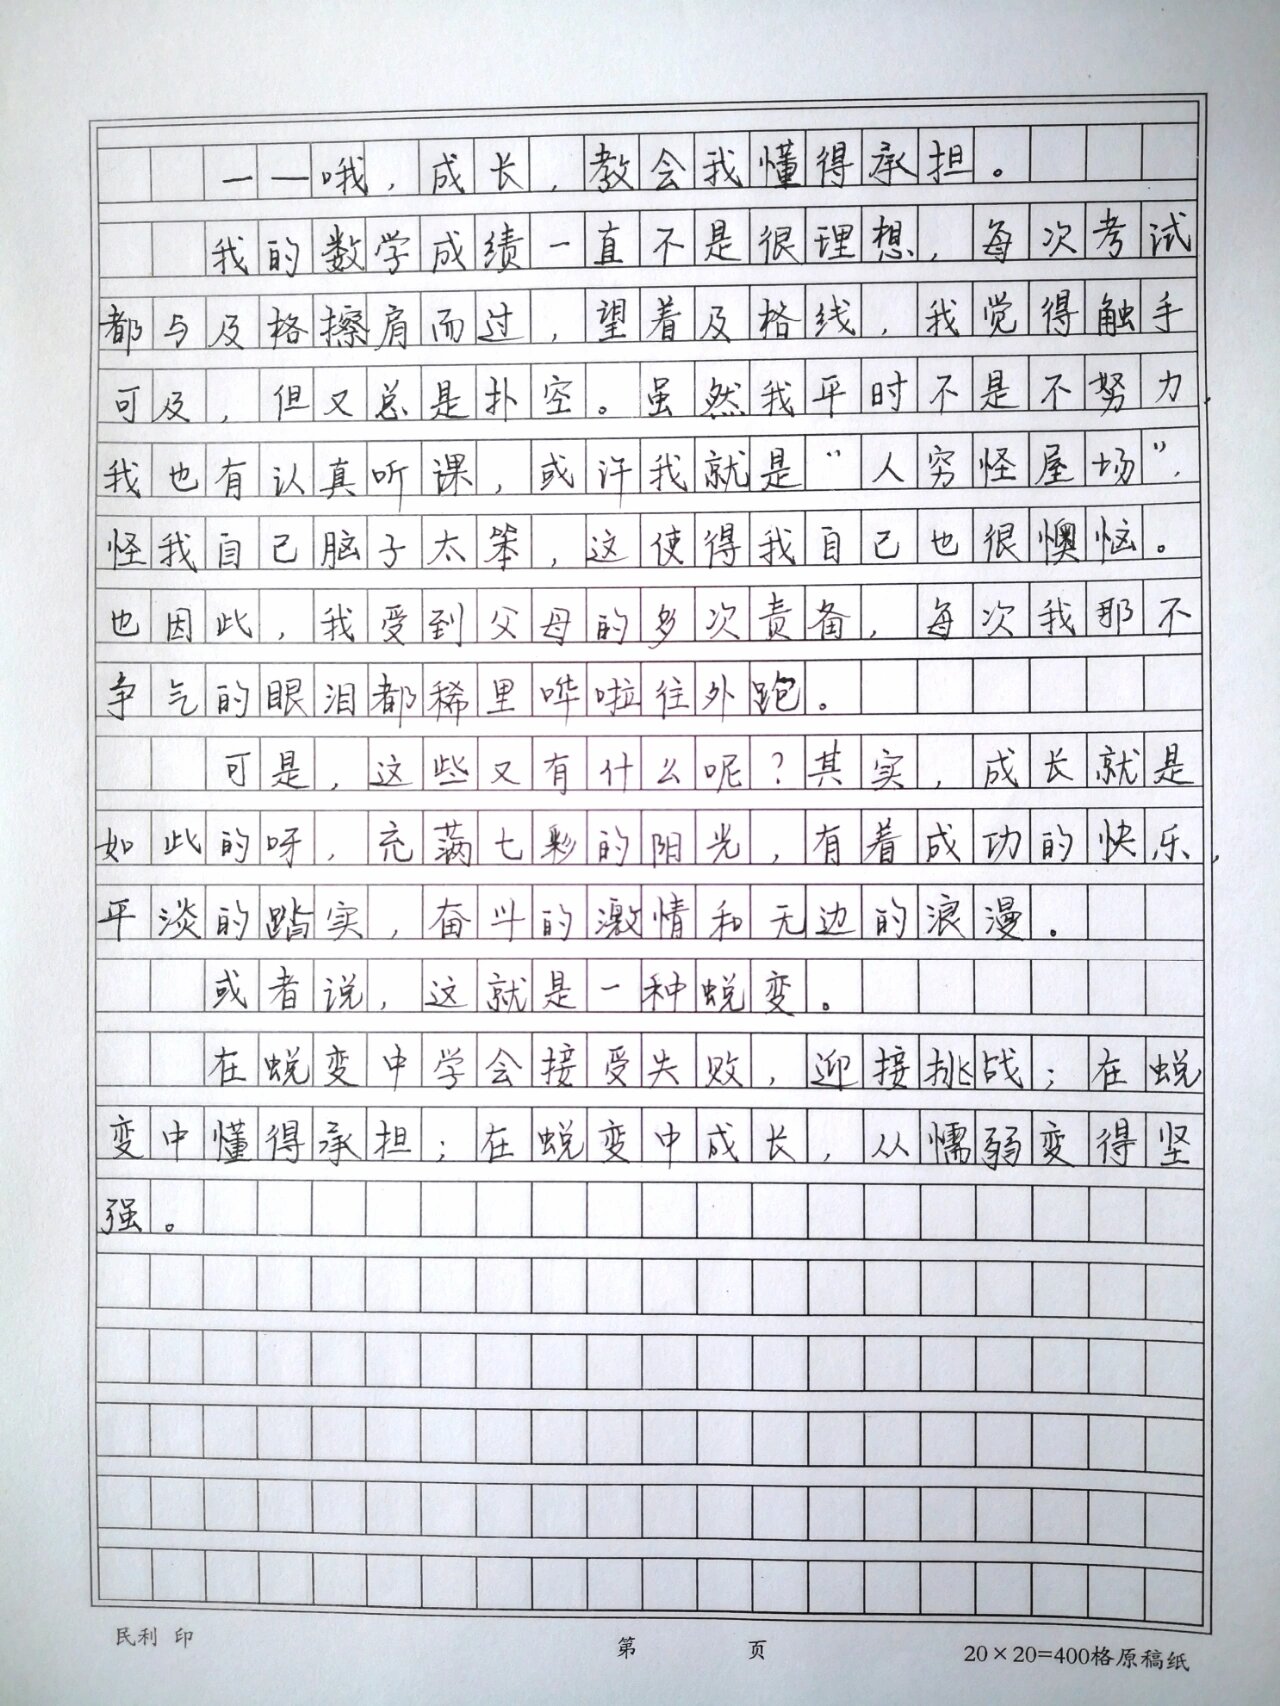 ——哦，成长，教会我懂得承担。
我的数学成绩一直不是很理想，每次考试
都与及格擦肩而过，望着及格线，我觉得触手
可及，但又总是扑空。虽然我平时不是不努力，
我也有认真听课，或许我就是“人穷怪屋场”，
怪我自己脑子太笨，这使得我自己也很懊恼。
也因此，我受到父母的多次责备，每次我那不
争气的眼泪都稀里哗啦往外跑。
可是，这些又有什么呢？其实，成长就是
如此的呀，充满七彩的阳光，有着成功的快乐，
平淡的踏实，奋斗的激情和无边的浪漫．
或者说，这就是一种蜕变。
在蜕变中学会接受失败，迎接挑战；在蜕
变中懂得承担；在蜕变中成长，从懦弱变得坚
强。
民利 印
第 页
20×20=400格原稿纸